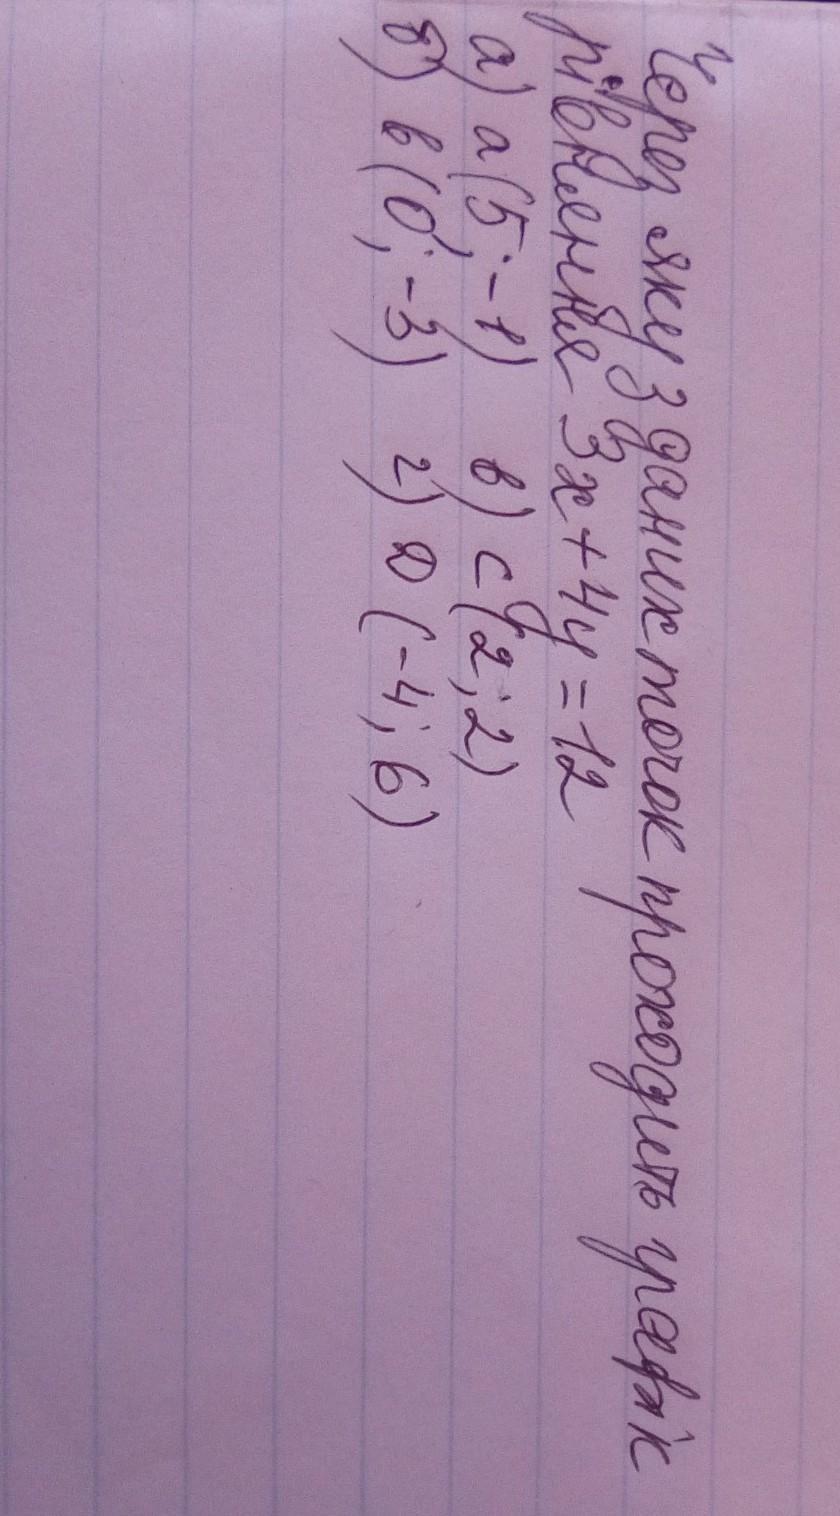 Через яку з даних точок проходить графік
рівняння 3x+4y=12
а) a(5;-1) в) c(2;2)
б) b(0;-3) г) D(-4;6)